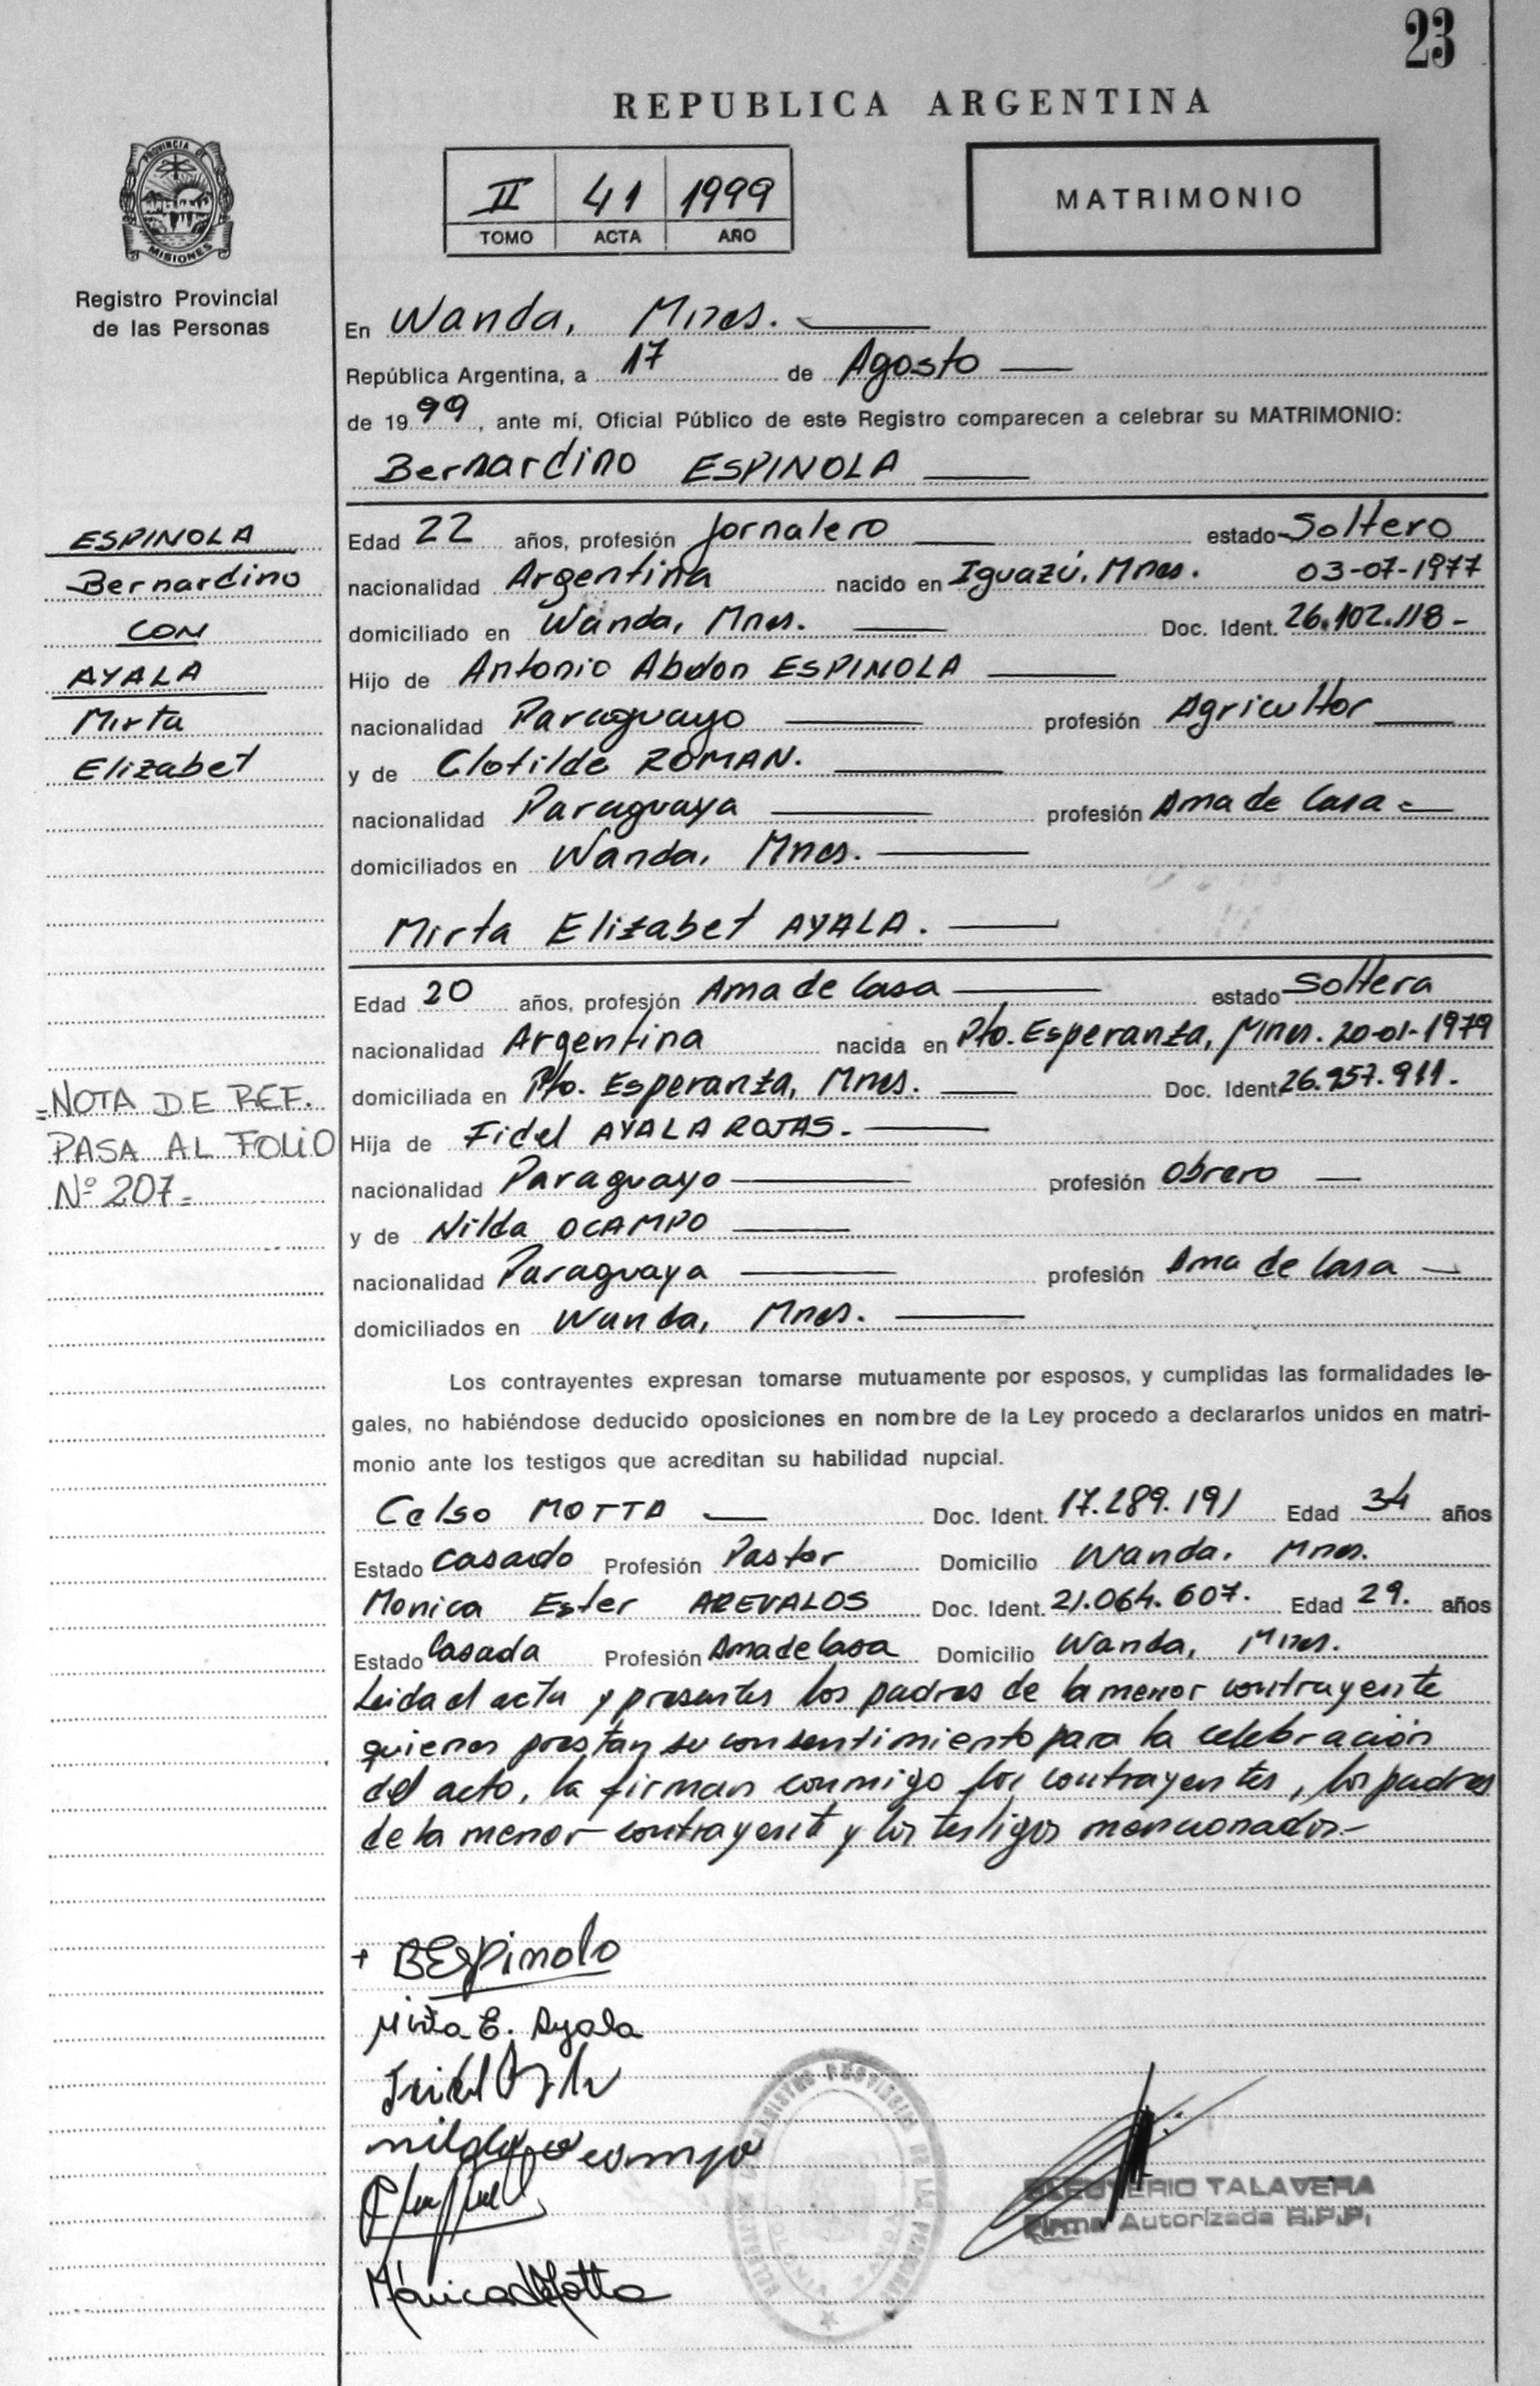 23
REPUBLICA ARGENTINA
PROVINCIA DE
MISIONES
Registro Provincial
de las Personas
II 41 1999
TOMO ACTA AÑO
MATRIMONIO
En Wanda, Mnes.
República Argentina, a 17 de Agosto
de 1999, ante mí, Oficial Público de este Registro comparecen a celebrar su MATRIMONIO:
Bernardino ESPINOLA
ESPINOLA
Bernardino
CON
AYALA
Mirta
Elizabet
Edad 22 años, profesión Jornalero estado Soltero
nacionalidad Argentina nacido en Iguazú, Mnes. 03-07-1977
domiciliado en Wanda, Mnes. Doc. Ident. 26.102.118-
Hijo de Antonio Abdon ESPINOLA
nacionalidad Paraguayo profesión Agricultor
y de Clotilde ROMAN.
nacionalidad Paraguaya profesión Ama de Casa
domiciliados en Wanda, Mnes.
Mirta Elizabet AYALA.
Edad 20 años, profesión Ama de Casa estado Soltera
nacionalidad Argentina nacida en Pto. Esperanza, Mnes. 20-01-1979
domiciliada en Pto. Esperanza, Mnes. Doc. Ident. 26.957.911.
Hija de Fidel AYALA ROJAS.
nacionalidad Paraguayo profesión Obrero
y de Nilda OCAMPO
nacionalidad Paraguaya profesión Ama de Casa
domiciliados en Wanda, Mnes.
=NOTA DE REF.
PASA AL FOLIO
Nº 207=
Los contrayentes expresan tomarse mutuamente por esposos, y cumplidas las formalidades le-
gales, no habiéndose deducido oposiciones en nombre de la Ley procedo a declararlos unidos en matri-
monio ante los testigos que acreditan su habilidad nupcial.
Celso MOTTA Doc. Ident. 17.289.191 Edad 34 años
Estado Casado Profesión Pastor Domicilio Wanda, Mnes.
Monica Ester AREVALOS Doc. Ident. 21.064.607. Edad 29. años
Estado Casada Profesión Ama de Casa Domicilio Wanda, Mnes.
Leida el acta y presentes los padres de la menor contrayente
quienes prestan su consentimiento para la celebración
del acto, la firman conmigo los contrayentes, los padres
de la menor contrayente y los testigos mencionados.-
+ BEspinola
Mirta E. Ayala
Fidel Ayala
nilda ocampo
Mónica de Motta
ELEUTERIO TALAVERA
Firma Autorizada R.P.P.